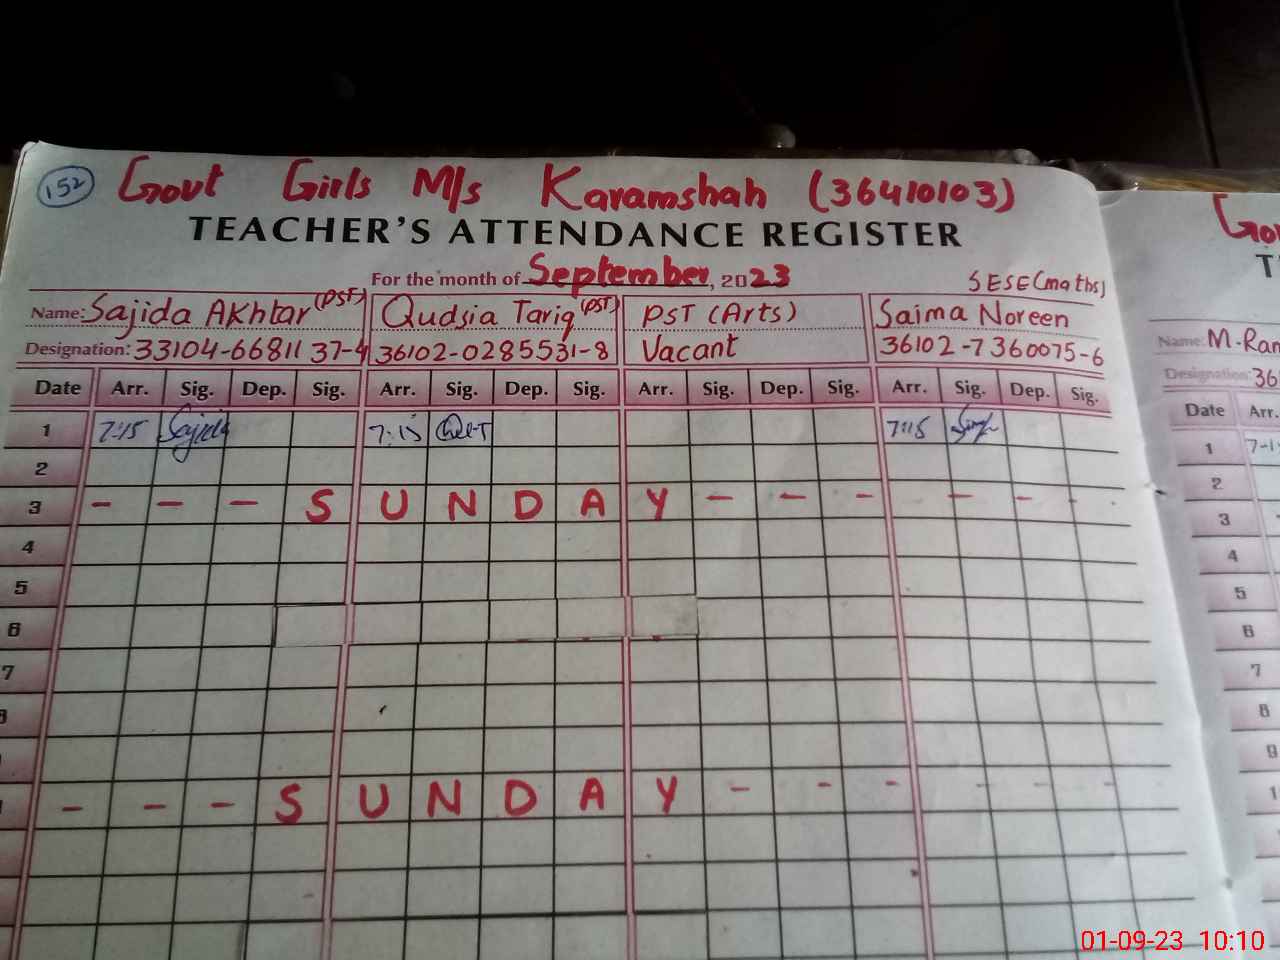 152 Govt Girls M/s Karamshah (36410103)
TEACHER'S ATTENDANCE REGISTER
For the month of September, 2023
SESE (maths)
Name: Sajida Akhtar (PST) Qudsia Tariq (PST) PST (Arts) Saima Noreen
Designation: 33104-6681137-4 36102-0285531-8 Vacant 36102-7360075-6
Date Arr. Sig. Dep. Sig. Arr. Sig. Dep. Sig. Arr. Sig. Dep. Sig. Arr. Sig. Dep. Sig.
1 7:15 Sajida 7:15 7:15
2
3 - - - S U N D A Y - - - - - -
4
5
6
7
8
- - - S U N D A Y - - - - - -
Name: M. Ran
Designation: 36
Date Arr.
1 7-1
2
3
4
5
6
7
8
9
01-09-23 10:10